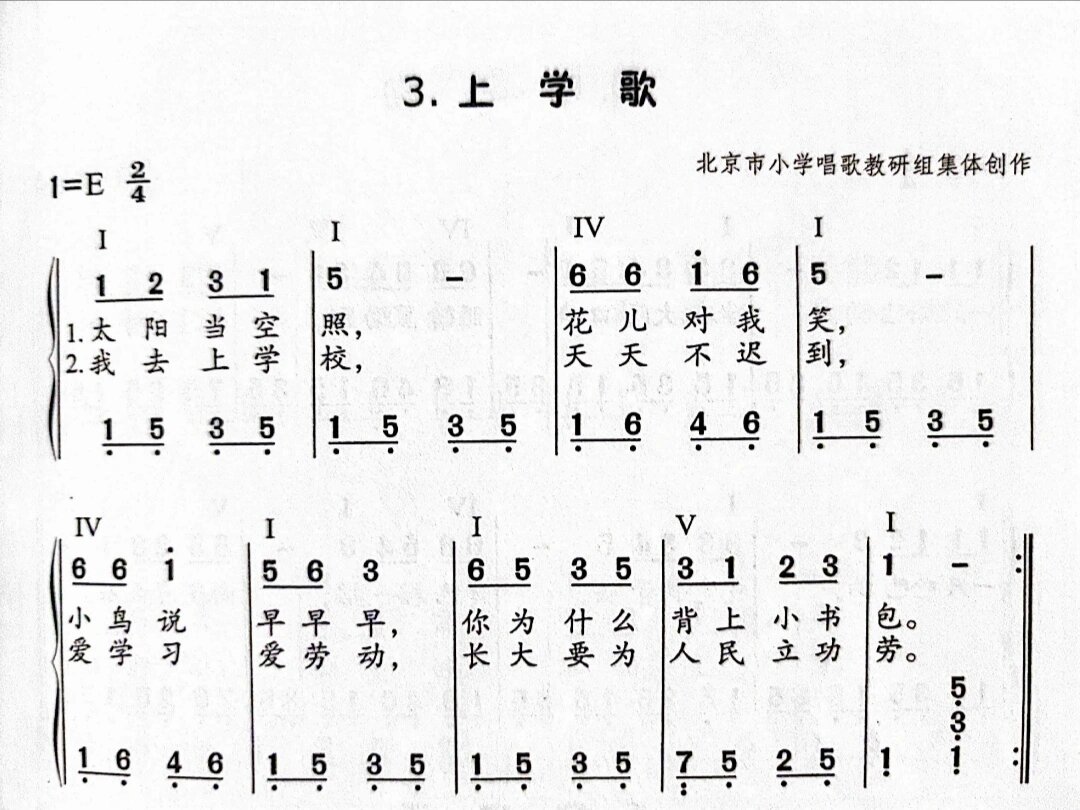 3. 上 学 歌
北京市小学唱歌教研组集体创作
1=E 2/4
I I IV I
1 2 3 1 | 5 － | 6 6 i̇ 6 | 5 －
1.太 阳 当 空 照, 花 儿 对 我 笑,
2.我 去 上 学 校, 天 天 不 迟 到,
1̣ 5̣ 3̣ 5̣ | 1̣ 5̣ 3̣ 5̣ | 1̣ 6̣ 4̣ 6̣ | 1̣ 5̣ 3̣ 5̣
IV I I V I
6 6 1̇ | 5 6 3 | 6 5 3 5 | 3 1 2 3 | 1 － :||
小 鸟 说 早 早 早, 你 为 什 么 背 上 小 书 包。
爱 学 习 爱 劳 动, 长 大 要 为 人 民 立 功 劳。
5̣
3̣
1̣ 6̣ 4̣ 6̣ | 1̣ 5̣ 3̣ 5̣ | 1̣ 5̣ 3̣ 5̣ | 7̣ 5̣ 2̣ 5̣ | 1̣ 1̣ :||